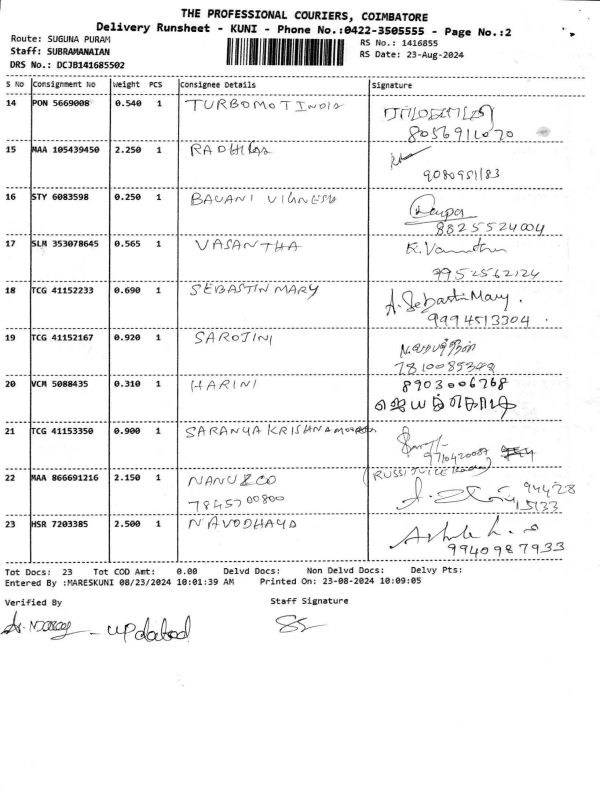 THE PROFESSIONAL COURIERS, COIMBATORE
Delivery Runsheet - KUNI - Phone No.:0422-3505555 - Page No.:2
Route: SUGUNA PURAM
RS No.: 1416855
Staff: SUBRAMANAIAN
RS Date: 23-Aug-2024
DRS No.: DCJB141685502
S No Consignment No Weight PCS Consignee Details Signature
14 PON 5669008 0.540 1 TURBOMOT INDIA
8056911070
15 MAA 105439450 2.250 1 RADHIKA
9080951183
16 STY 6083598 0.250 1 BAVANI VIGNESH
8825524004
17 SLM 353078645 0.565 1 VASANTHA
9952562124
18 TCG 41152233 0.690 1 SEBASTIN MARY A. Sebasti Mary.
9994513304
19 TCG 41152167 0.920 1 SAROJINI
20 VCM 5088435 0.310 1 HARINI 8903006768
21 TCG 41153350 0.900 1 SARANYA KRISHNAMOORTHY
22 MAA 866691216 2.150 1 NANU & CO
7845700800
94428
15133
23 HSR 7203385 2.500 1 NAVODHAYA
9940987933
Tot Docs: 23 Tot COD Amt: 0.00 Delvd Docs: Non Delvd Docs: Delvy Pts:
Entered By :MARESKUNI 08/23/2024 10:01:39 AM Printed On: 23-08-2024 10:09:05
Verified By Staff Signature
- updated